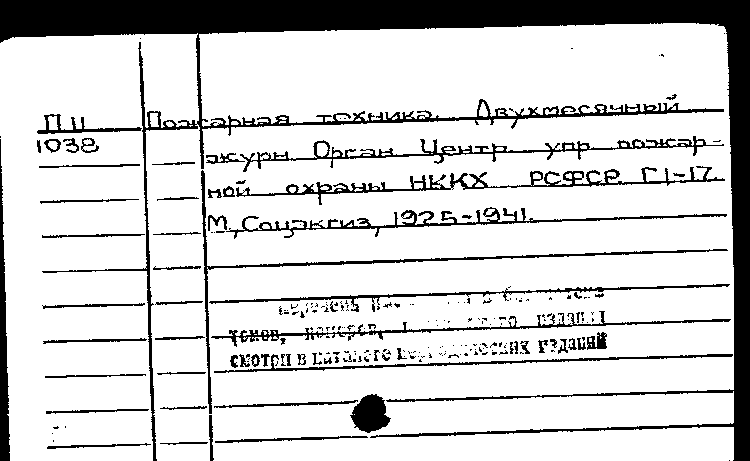 П 11 Пожарная техника. Двухмесячный
1038 журн. Орган Центр. упр. пожар-
ной охраны НККХ РСФСР. Г 1-17.
М., Соцэкгиз, 1925-1941.
перечень в библиотеке
томов, номеров, издания
смотри в каталоге периодических изданий